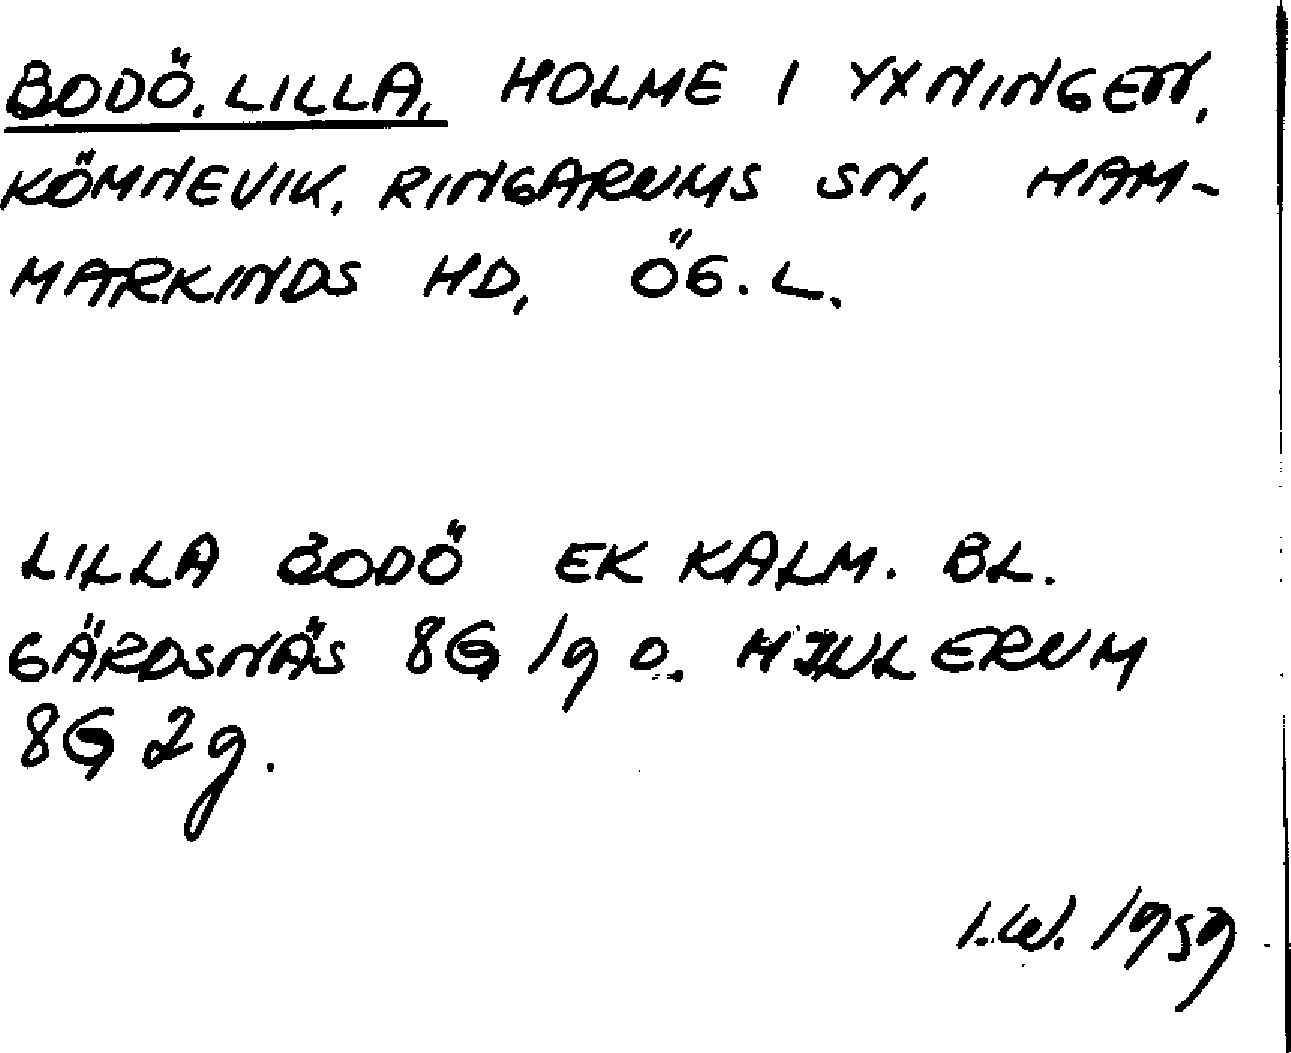 BODÖ, LILLA, HOLME I YXNINGEN,
KÖMNEVIK, RINGARUMS SN, HAM-
MARKINDS HD, ÖG. L.
LILLA BODÖ EK KALM. BL.
GÄRDSNÄS 8G 1g O. HJULERUM
8G 2g.
I.W. 1959